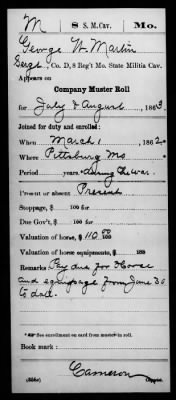 M 8 S. M. Cav. Mo.
George W. Martin
Sergt, Co. D, 8 Reg't Mo. State Militia Cav.
Appears on
Company Muster Roll
for July & August, 1863.
Joined for duty and enrolled:
When March 1, 1862.
Where Pittsburg Mo
Period years. * during the war.
Present or absent Present
Stoppage, $ 100 for
Due Gov't, $ 100 for
Valuation of horse, $ 110 00/100
Valuation of horse equipments, $ 100
Remarks Pay due for Horse
and equipage from June 30
to date.
Book mark:
Cameron
Copyist.